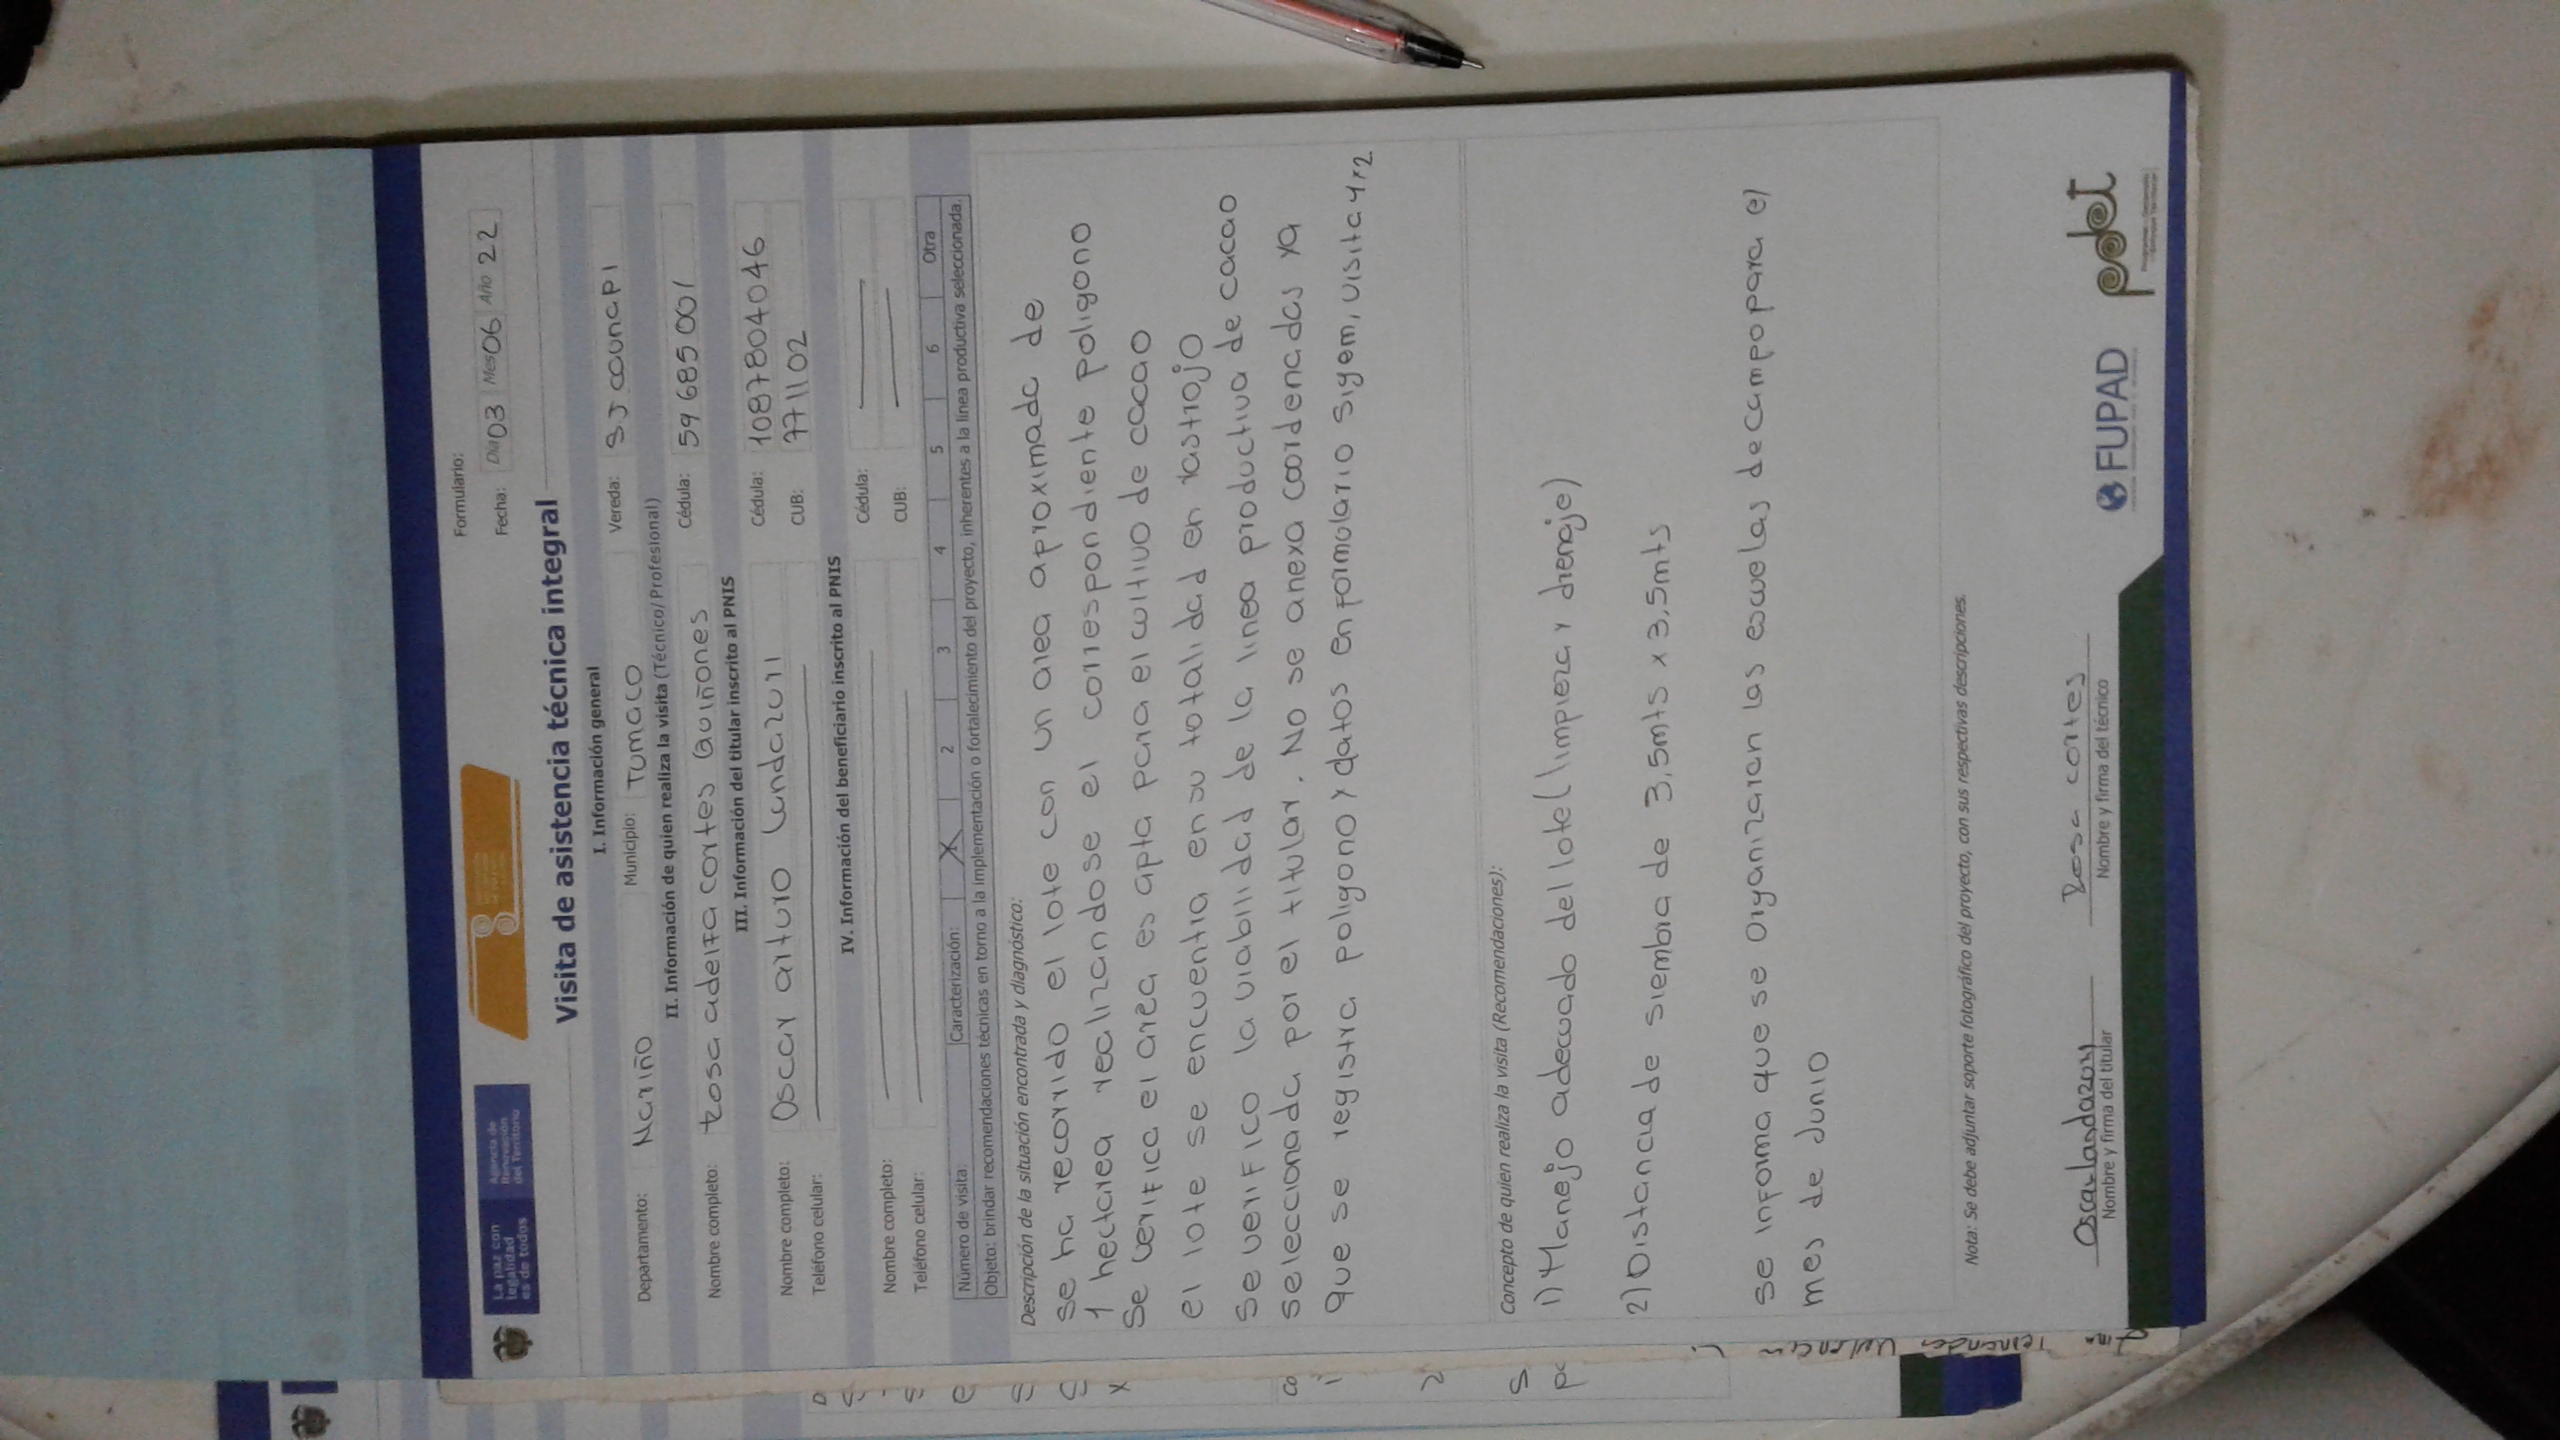 La paz con
legalidad
es de todos
Agencia de
Renovación
del Territorio
Formulario:
Fecha: Día 03 Mes 06 Año 22
Visita de asistencia técnica integral
I. Información general
Departamento: Nariño Municipio: Tumaco Vereda: SJ counapi
II. Información de quien realiza la visita (Técnico/Profesional)
Nombre completo: Rosa adelfa cortes Quiñones Cédula: 59 685 001
III. Información del titular inscrito al PNIS
Nombre completo: Oscar arturo Landazuri Cédula: 1087804046
Teléfono celular: CUB: 771102
IV. Información del beneficiario inscrito al PNIS
Nombre completo: Cédula:
Teléfono celular: CUB:
Número de visita: Caracterización: X 2 3 4 5 6 Otra
Objeto: brindar recomendaciones técnicas en torno a la implementación o fortalecimiento del proyecto, inherentes a la línea productiva seleccionada.
Descripción de la situación encontrada y diagnóstico:
se ha recorrido el lote con un area aproximada de
1 hectarea realizandose el correspondiente poligono
Se verifica el area es apta para el cultivo de cacao
el lote se encuentra en su totalidad en rastrojo
se verifico la viabilidad de la linea productiva de cacao
seleccionada por el titular. No se anexa coordenadas ya
que se registra poligono y datos en formulario sigem, visita 1 y 2
Concepto de quien realiza la visita (Recomendaciones):
1) Manejo adecuado del lote (limpieza y drenaje)
2) Distancia de siembra de 3,5mts x 3,5mts
se informa que se organizaran las escuelas de campo para el
mes de Junio
Nota: Se debe adjuntar soporte fotográfico del proyecto, con sus respectivas descripciones.
Oscar landazury Rosa cortes
Nombre y firma del titular Nombre y firma del técnico
FUPAD
pdet